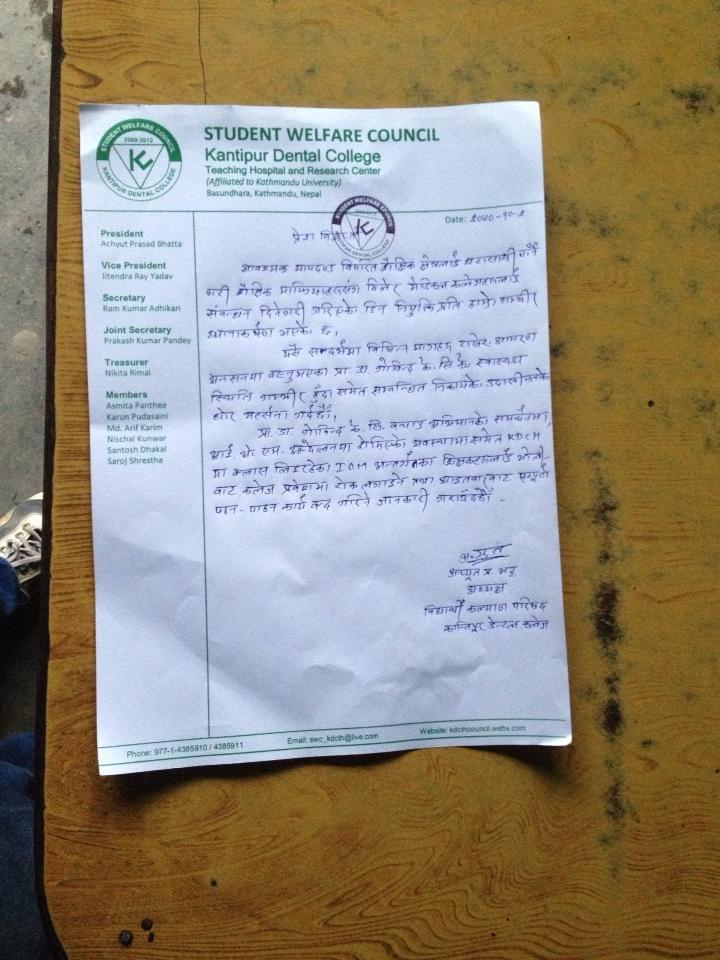 STUDENT WELFARE COUNCIL
2069-2012
KANTIPUR DENTAL COLLEGE
STUDENT WELFARE COUNCIL
Kantipur Dental College
Teaching Hospital and Research Center
(Affiliated to Kathmandu University)
Basundhara, Kathmandu, Nepal
Date: 2070-10-2
President
Achyut Prasad Bhatta
Vice President
Jitendra Ray Yadav
Secretary
Ram Kumar Adhikari
Joint Secretary
Prakash Kumar Pandey
Treasurer
Nikita Rimal
Members
Asmita Panthee
Karun Pudasaini
Md. Arif Karim
Nischal Kunwar
Santosh Dhakal
Saroj Shrestha
STUDENT WELFARE COUNCIL
KANTIPUR DENTAL COLLEGE
प्रेस
आवश्यक मापदण्ड विपरित शैक्षिक क्षेत्रलाई धरासायी
गरी शैक्षिक माफियाहरुसंग मिलेर मेडिकल कलेजहरुलाई
संबन्धन दिनेगरी गरिएको डिन नियुक्ति प्रति हाम्रो गम्भीर
ध्यानाकर्षण भएको छ,
यसै सन्दर्भमा विभिन्न मागहरु राखेर आमरण
अनसनमा बस्नुभएका प्रा. डा. गोविन्द के. सि. को स्वास्थ्य
स्थिति गम्भीर हुँदा समेत सम्बन्धित निकायको उदासीनताको
घोर भर्त्सना गर्दछौं,
प्रा. डा. गोविन्द के. सि. बचाउ अभियानको समर्थनमा,
आई. ओ. एम. आन्दोलनमा होमिएको अवस्थामा समेत KDCH
मा क्लास लिइरहेका IOM अन्तर्गतका शिक्षकहरुलाई भोली-
बाट कलेज प्रवेशमा रोक लगाउने तथा आइतबारबाट सम्पूर्ण
पठन-पाठन कार्य बन्द गरिने जानकारी गराउँदछौं.
अच्यूत प्र. भट्ट
अध्यक्ष
विद्यार्थी कल्याण परिषद
कान्तिपुर डेन्टल कलेज
Phone: 977-1-4385910 / 4385911
Email: swc_kdcth@live.com
Website: kdcthcouncil.webs.com